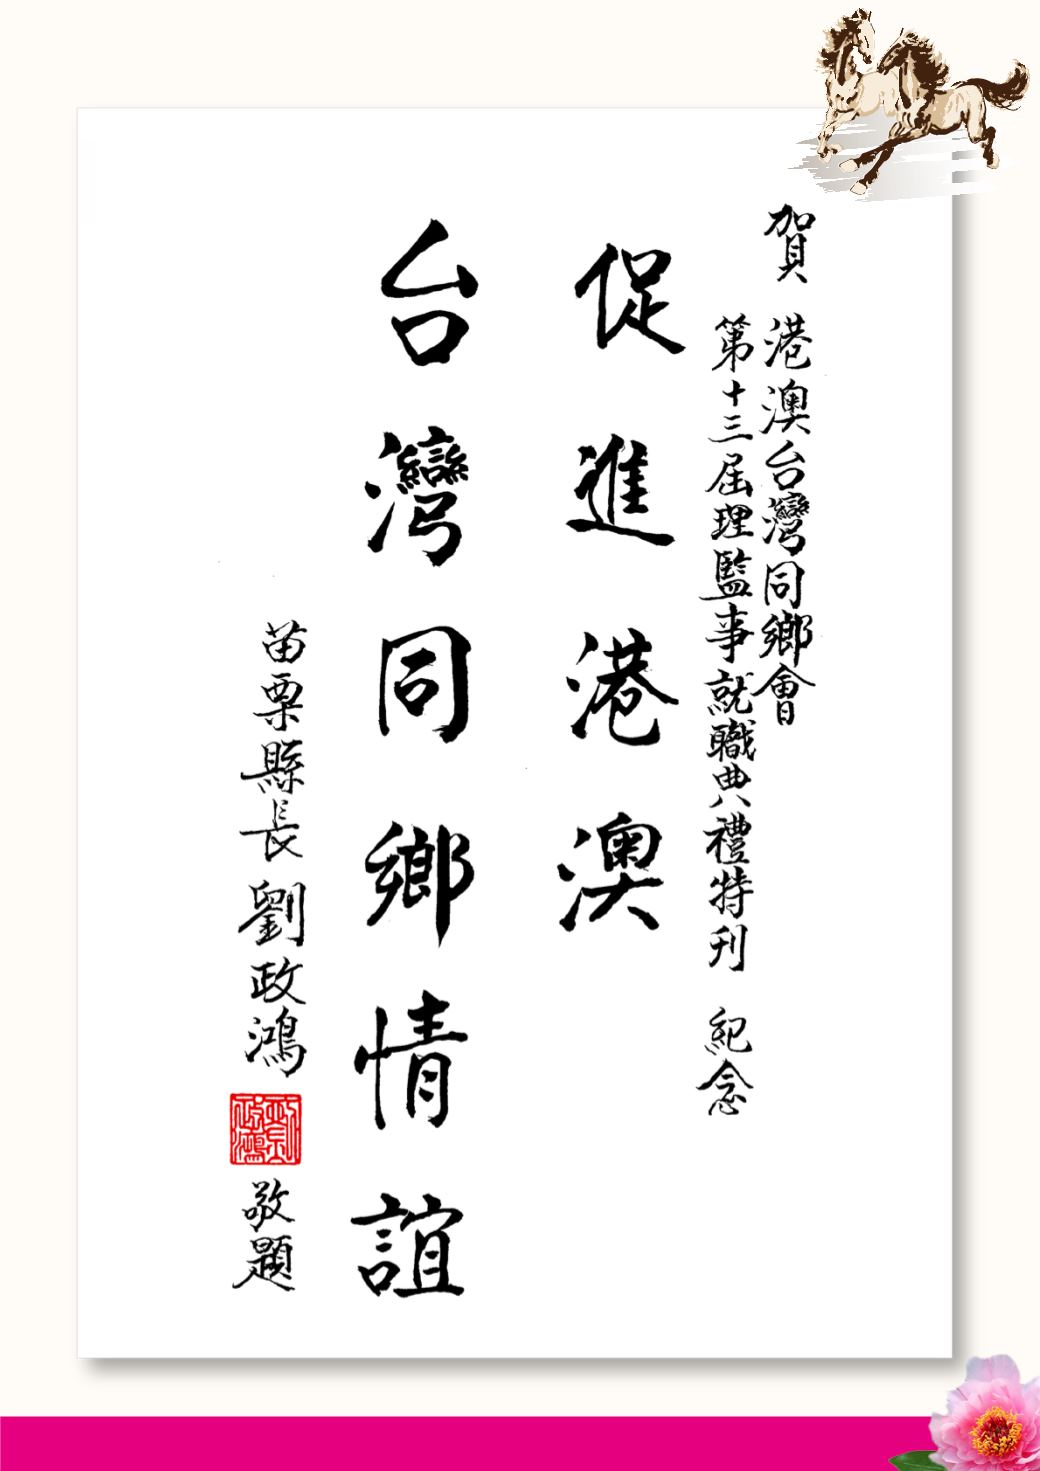 賀 港澳台灣同鄉會
第十三屆理監事就職典禮特刊 紀念
促進港澳
台灣同鄉情誼
苗栗縣長 劉政鴻
劉政鴻
敬題